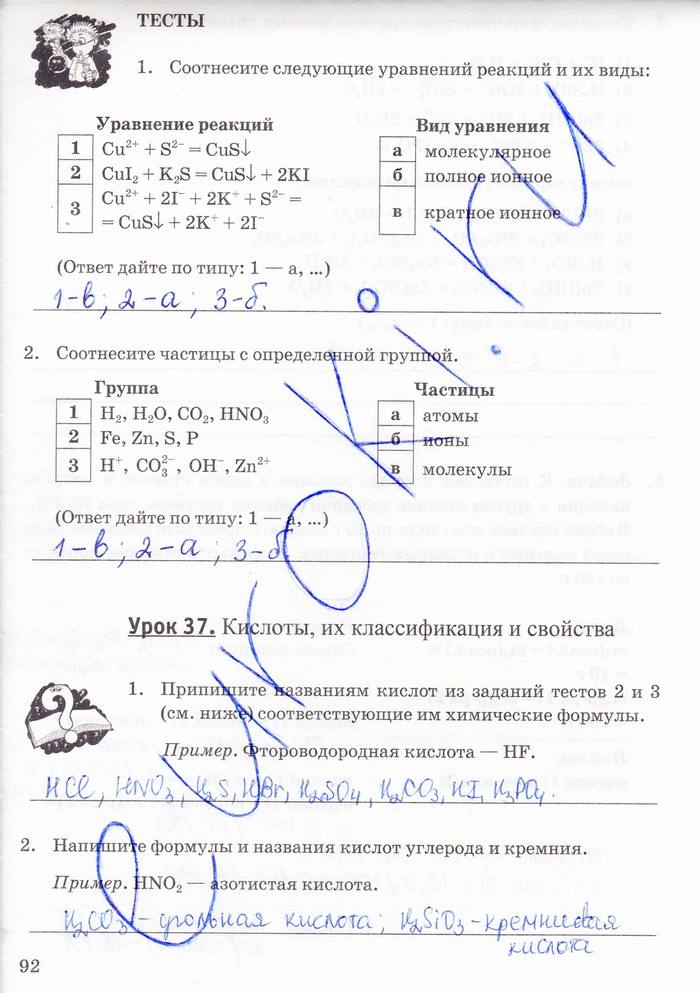 ТЕСТЫ
1. Соотнесите следующие уравнений реакций и их виды:
Уравнение реакций Вид уравнения
1 Cu²⁺ + S²⁻ = CuS↓ а молекулярное
2 CuI₂ + K₂S = CuS↓ + 2KI б полное ионное
3 Cu²⁺ + 2I⁻ + 2K⁺ + S²⁻ =
= CuS↓ + 2K⁺ + 2I⁻ в кратное ионное
(Ответ дайте по типу: 1 — а, ...)
1-в; 2-а; 3-б.
2. Соотнесите частицы с определенной группой.
Группа Частицы
1 H₂, H₂O, CO₂, HNO₃ а атомы
2 Fe, Zn, S, P б ионы
3 H⁺, CO₃²⁻, OH⁻, Zn²⁺ в молекулы
(Ответ дайте по типу: 1 — а, ...)
1-в; 2-а; 3-б
Урок 37. Кислоты, их классификация и свойства
1. Припишите названиям кислот из заданий тестов 2 и 3
(см. ниже) соответствующие им химические формулы.
Пример. Фтороводородная кислота — HF.
HCl, HNO₃, H₂S, HBr, H₂SO₄, H₂CO₃, HI, H₃PO₄.
2. Напишите формулы и названия кислот углерода и кремния.
Пример. HNO₂ — азотистая кислота.
H₂CO₃ - угольная кислота; H₂SiO₃ - кремниевая
кислота
92